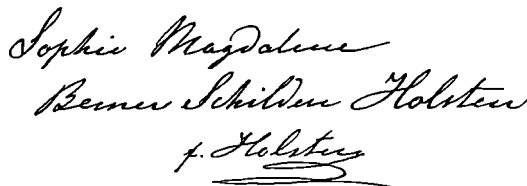 Sophie Magdalene
Berner Schilden Holsten
f. Holsten